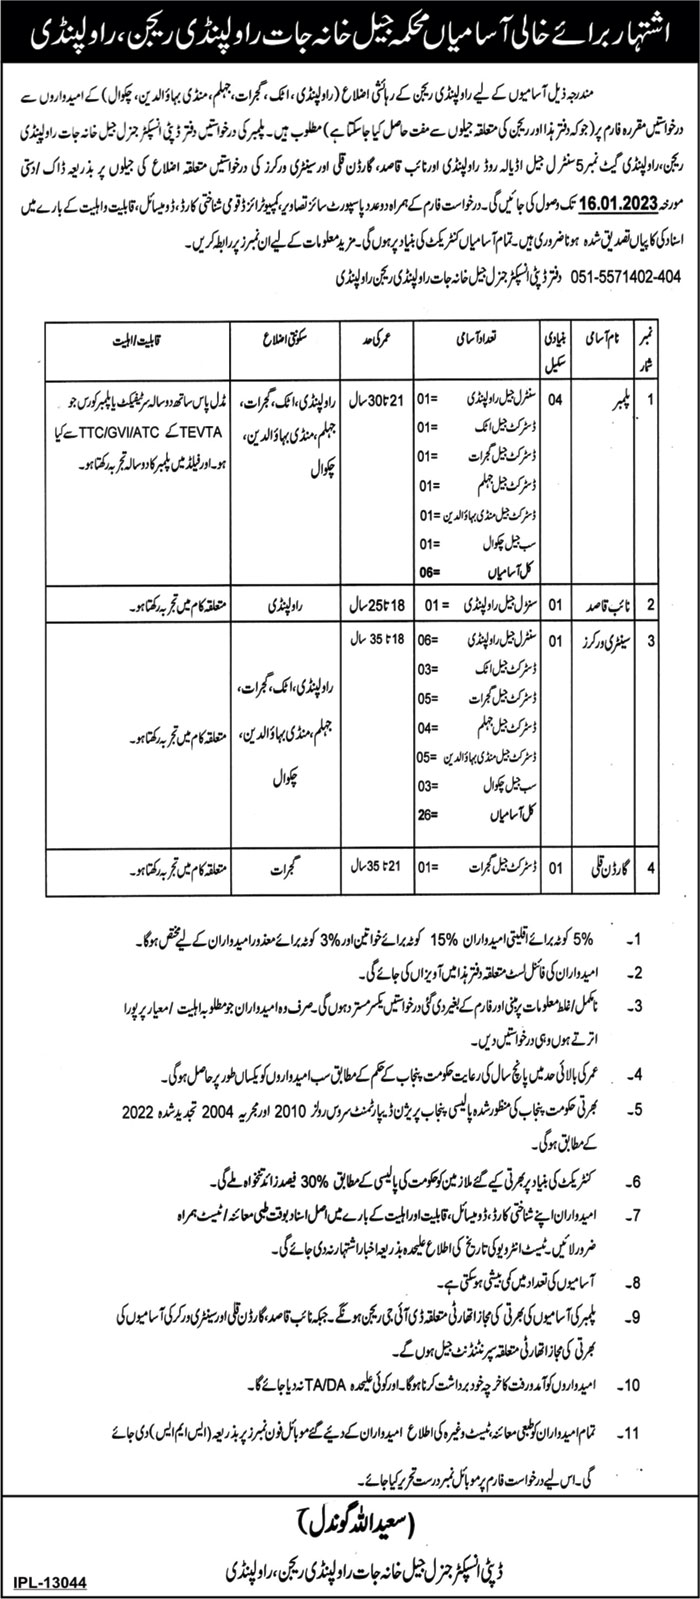 اشتہار برائے خالی آسامیاں محکمہ جیل خانہ جات راولپنڈی ریجن، راولپنڈی
مندرجہ ذیل آسامیوں کے لیے راولپنڈی ریجن کے رہائشی اضلاع (راولپنڈی، اٹک، گجرات، جہلم، منڈی بہاؤالدین، چکوال) کے امیدواروں سے
درخواستیں مقررہ فارم پر (جو کہ دفتر ہذا اور ریجن کی متعلقہ جیلوں سے مفت حاصل کیا جا سکتا ہے) مطلوب ہیں۔ پلمبر کی درخواستیں دفتر ڈپٹی انسپکٹر جنرل جیل خانہ جات راولپنڈی
ریجن، راولپنڈی گیٹ نمبر 5 سنٹرل جیل اڈیالہ روڈ راولپنڈی اور نائب قاصد، گارڈن قلی اور سینٹری ورکرز کی درخواستیں متعلقہ اضلاع کی جیلوں پر بذریعہ ڈاک / دستی
مورخہ 16.01.2023 تک وصول کی جائیں گی۔ درخواست فارم کے ہمراہ دو عدد پاسپورٹ سائز تصاویر، کمپیوٹرائزڈ قومی شناختی کارڈ، ڈومیسائل، قابلیت و اہلیت کے بارے میں
اسناد کی کاپیاں تصدیق شدہ ہونا ضروری ہیں۔ تمام آسامیاں کنٹریکٹ کی بنیاد پر ہوں گی۔ مزید معلومات کے لیے ان نمبرز پر رابطہ کریں۔
051-5571402-404 دفتر ڈپٹی انسپکٹر جنرل جیل خانہ جات راولپنڈی ریجن راولپنڈی
نمبر شمار
نام آسامی
بنیادی سکیل
تعداد آسامی
عمر کی حد
سکونتی اضلاع
قابلیت / اہلیت
1
پلمبر
04
سنٹرل جیل راولپنڈی =01
ڈسٹرکٹ جیل اٹک =01
ڈسٹرکٹ جیل گجرات =01
ڈسٹرکٹ جیل جہلم =01
ڈسٹرکٹ جیل منڈی بہاؤالدین =01
سب جیل چکوال =01
کل آسامیاں =06
21 تا 30 سال
راولپنڈی، اٹک، گجرات،
جہلم، منڈی بہاؤالدین،
چکوال
مڈل پاس ساتھ دو سالہ سرٹیفکیٹ یا پلمبر کورس جو
TEVTA کے TTC/GVI/ATC سے کیا
ہو۔ اور فیلڈ میں پلمبر کا دو سالہ تجربہ رکھتا ہو۔
2
نائب قاصد
01
سنٹرل جیل راولپنڈی = 01
18 تا 25 سال
راولپنڈی
متعلقہ کام میں تجربہ رکھتا ہو۔
3
سینٹری ورکرز
01
سنٹرل جیل راولپنڈی =06
ڈسٹرکٹ جیل اٹک =03
ڈسٹرکٹ جیل گجرات =05
ڈسٹرکٹ جیل جہلم =04
ڈسٹرکٹ جیل منڈی بہاؤالدین =05
سب جیل چکوال =03
کل آسامیاں =26
18 تا 35 سال
راولپنڈی، اٹک، گجرات،
جہلم، منڈی بہاؤالدین،
چکوال
متعلقہ کام میں تجربہ رکھتا ہو۔
4
گارڈن قلی
01
ڈسٹرکٹ جیل گجرات =01
21 تا 35 سال
گجرات
متعلقہ کام میں تجربہ رکھتا ہو۔
1۔ 5% کوٹہ برائے اقلیتی امیدواران 15% کوٹہ برائے خواتین اور 3% کوٹہ برائے معذور امیدواران کے لیے مختص ہوگا۔
2۔ امیدواران کی فائنل لسٹ متعلقہ دفتر ہذا میں آویزاں کی جائے گی۔
3۔ نامکمل / غلط معلومات پر مبنی اور فارم کے بغیر دی گئی درخواستیں یکسر مسترد ہوں گی۔ صرف وہ امیدواران جو مطلوبہ اہلیت / معیار پر پورا
اترتے ہوں وہی درخواستیں دیں۔
4۔ عمر کی بالائی حد میں پانچ سال کی رعایت حکومت پنجاب کے حکم کے مطابق سب امیدواروں کو یکساں طور پر حاصل ہوگی۔
5۔ بھرتی حکومت پنجاب کی منظور شدہ پالیسی پنجاب پریژن ڈیپارٹمنٹ سروس رولز 2010 اور مجریہ 2004 تجدید شدہ 2022
کے مطابق ہوگی۔
6۔ کنٹریکٹ کی بنیاد پر بھرتی کیے گئے ملازمین کو حکومت کی پالیسی کے مطابق 30% فیصد زائد تنخواہ ملے گی۔
7۔ امیدواران اپنے شناختی کارڈ، ڈومیسائل، قابلیت اور اہلیت کے بارے میں اصل اسناد بوقت طبی معائنہ / ٹیسٹ ہمراہ
ضرور لائیں۔ ٹیسٹ انٹرویو کی تاریخ کی اطلاع علیحدہ بذریعہ اخبار اشتہار نہ دی جائے گی۔
8۔ آسامیوں کی تعداد میں کمی بیشی ہو سکتی ہے۔
9۔ پلمبر کی آسامیوں کی بھرتی کی مجاز اتھارٹی متعلقہ ڈی آئی جی ریجن ہونگے۔ جبکہ نائب قاصد، گارڈن قلی اور سینٹری ورکر کی آسامیوں کی
بھرتی کی مجاز اتھارٹی متعلقہ سپرنٹنڈنٹ جیل ہوں گے۔
10۔ امیدواروں کو آمدورفت کا خرچہ خود برداشت کرنا ہوگا۔ اور کوئی علیحدہ TA/DA نہ دیا جائے گا۔
11۔ تمام امیدواران کو طبی معائنہ، ٹیسٹ وغیرہ کی اطلاع امیدواران کے دیئے گئے موبائل فون نمبرز پر بذریعہ (ایس ایم ایس) دی جائے
گی۔ اس لیے درخواست فارم پر موبائل نمبر درست تحریر کیا جائے۔
(سعید اللہ گوندل)
ڈپٹی انسپکٹر جنرل جیل خانہ جات راولپنڈی ریجن، راولپنڈی
IPL-13044